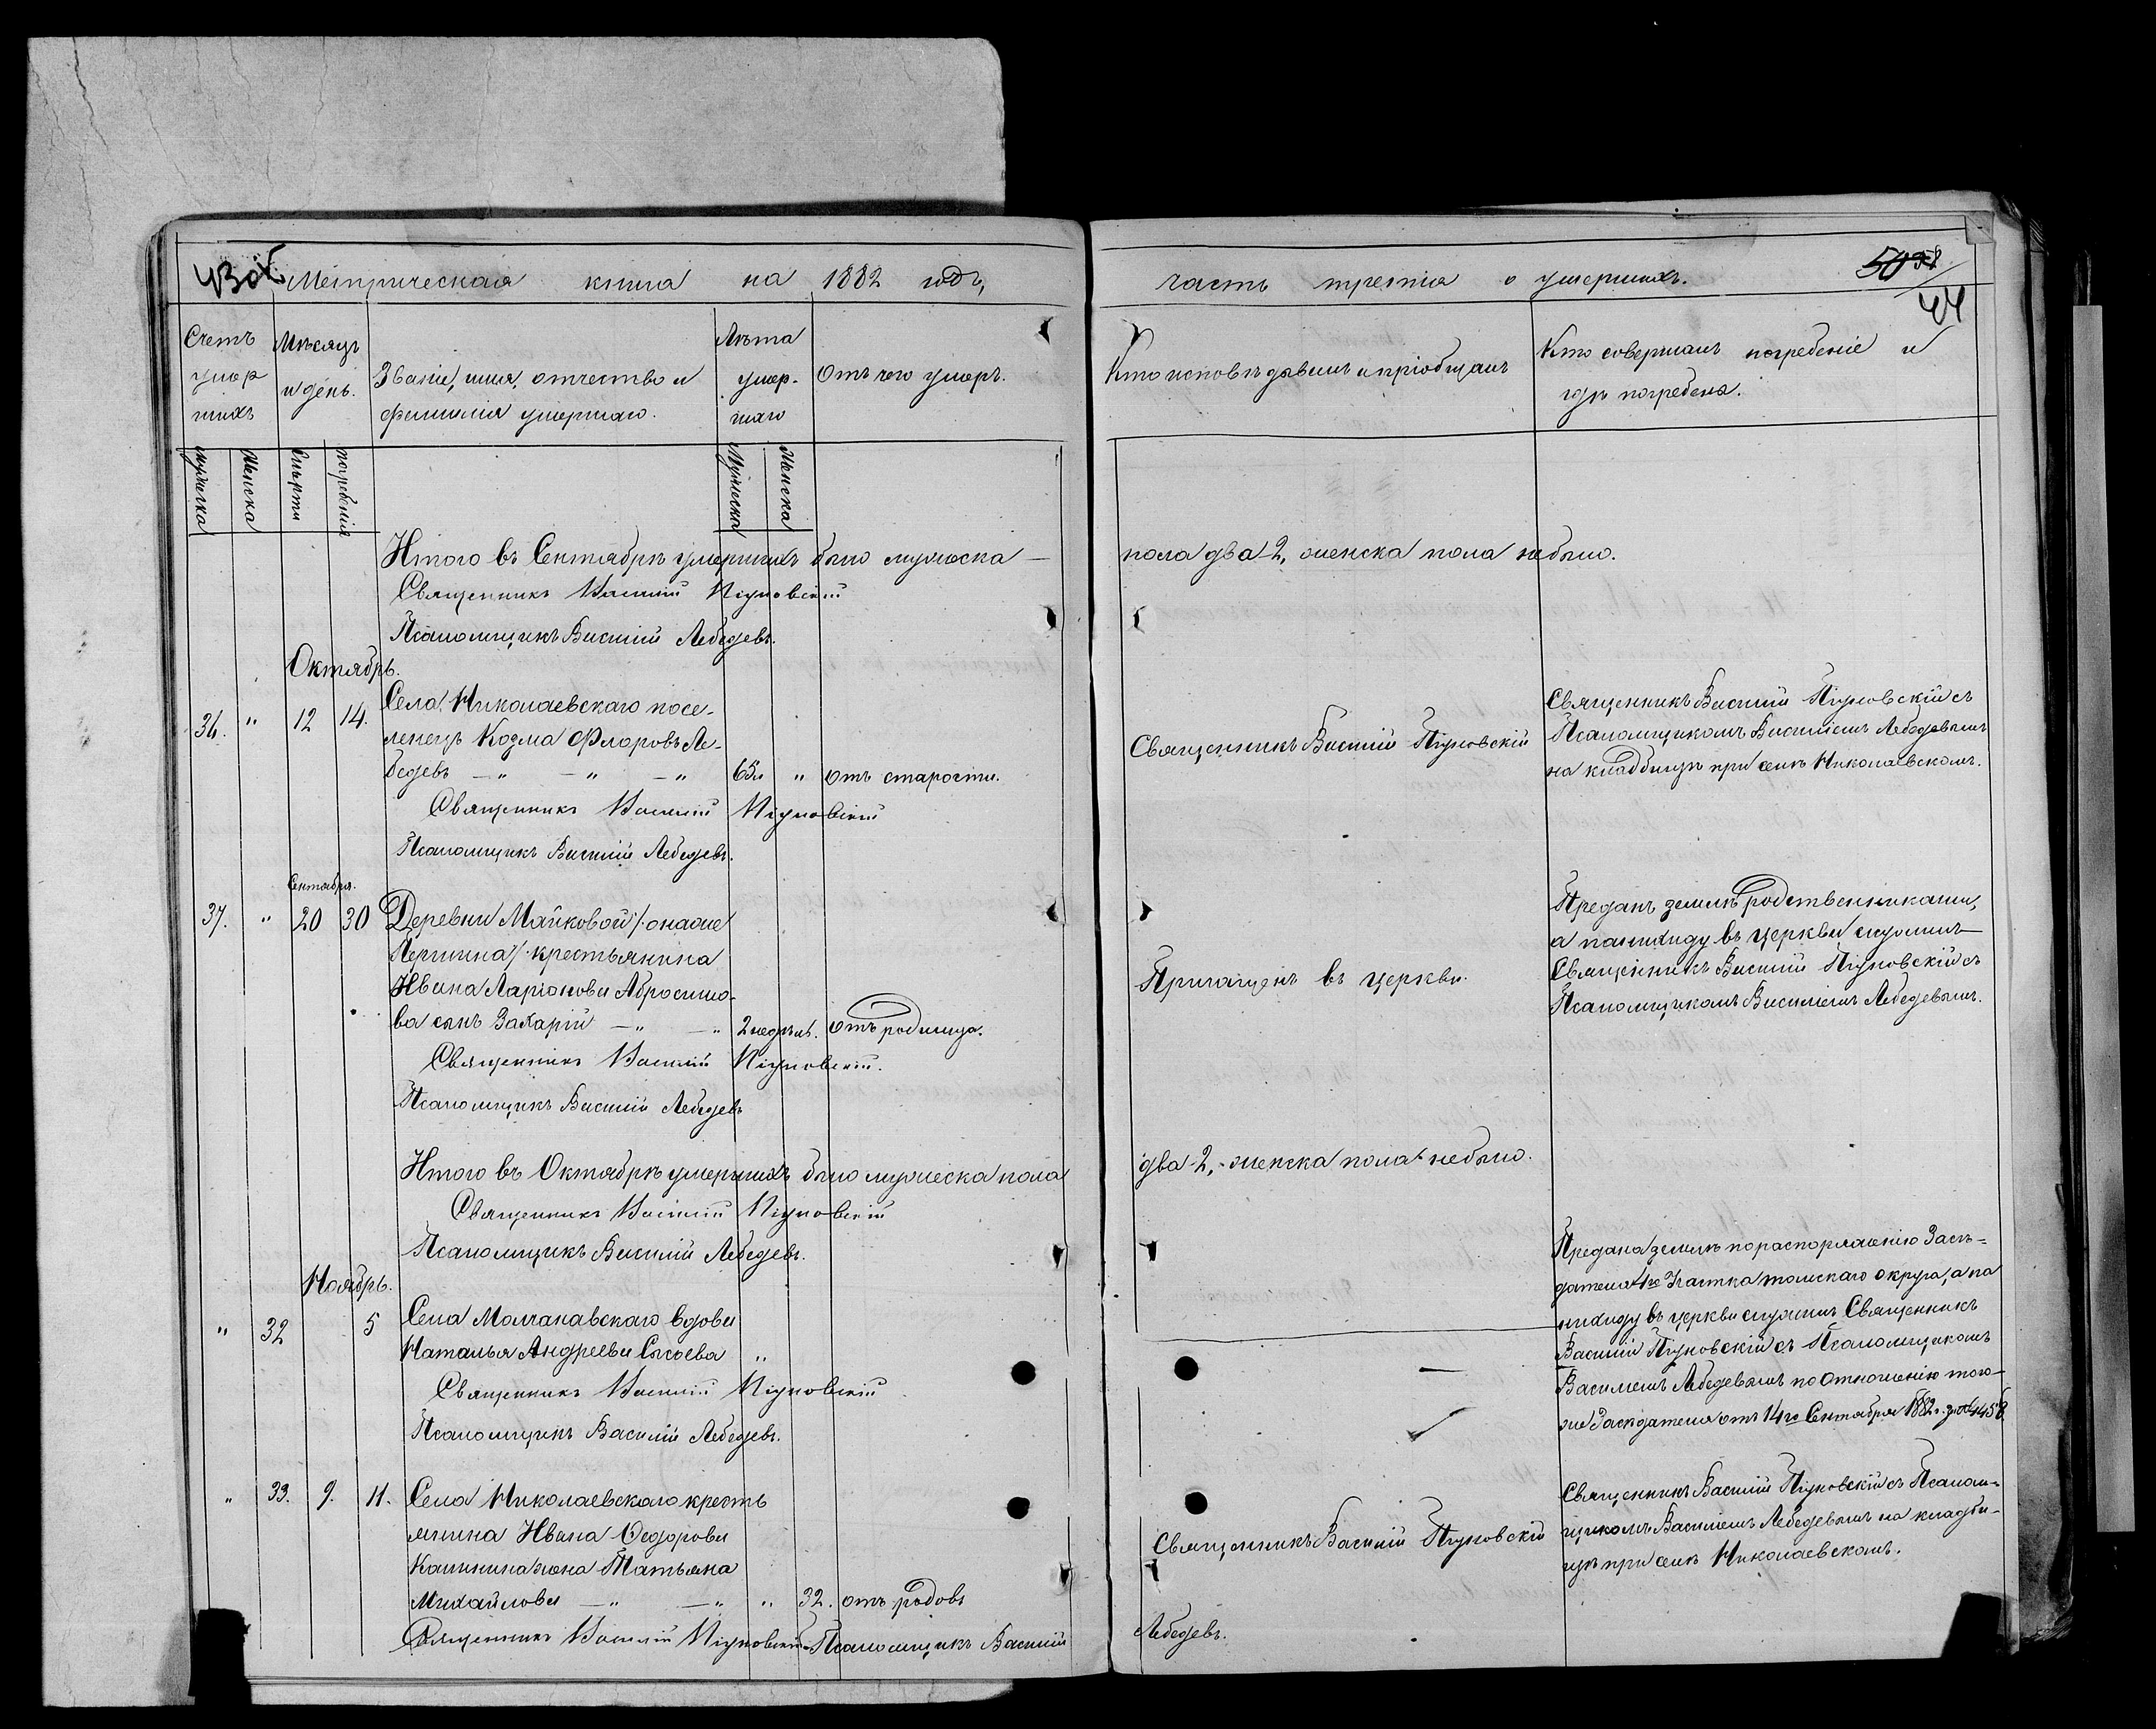 43об Метрическая книга на 1882 годъ,
Счетъ умер шихъ
Мѣсяцъ и день.
Званіе, имя, отчество и
фамилия умершаго.
Лѣта умер- шаго
Отъ чего умеръ.
мужеска
Женска
Смерти
погребенія
Мужеска
Женска
Итого въ Сентябрѣ умершихъ было мужеска —
Священникъ Василій
Псаломщикъ Василій Лебедевъ.
Октябрь.
36. " 12 14. Села Николаевскаго посе-
ленецъ Козма Флоровъ Ле-
бедевъ — " — " — " 65. " отъ старости.
Священникъ Василій
Псаломщикъ Василій Лебедевъ.
Сентября.
37. " 20 30 Деревни Майковой /: онаже
крестьянина
Ивана Ларіонова Абросимо-
ва сынъ Захарій — " — " 2 недѣль. отъ родимца.
Священникъ Василій
Псаломщикъ Василій Лебедевъ
Итого въ Октябрѣ умершихъ было мужеска пола
Священникъ Василій
Псаломщикъ Василій Лебедевъ.
Ноябрь.
" 32 5 Села Молчановскаго вдова
Наталья Андреева Сысоева "
Священникъ Василій
Псаломщикъ Василій Лебедевъ.
" 33. 9. 11. Села Николаевскаго кресть
янина Ивана Федорова
Калинина жена Татьяна
Михайлова — " — " " 32. отъ родовъ
Священникъ Василій Псаломщикъ Василій
часть третія о умершихъ.
50
44
Кто исповѣдывалъ и пріобщалъ
Кто совершалъ погребеніе и
гдѣ погребенъ.
пола два 2, женска пола небыло.
Священникъ Василій
Священникъ Василій съ
Псаломщикомъ Василіемъ Лебедевымъ
на кладбищѣ при селѣ Николаевскомъ.
Причащенъ въ церкви.
Преданъ землѣ родственниками,
а панихиду въ церкви служилъ
Священникъ Василій съ
Псаломщикомъ Василіемъ Лебедевымъ.
два 2, женска пола небыло.
Предана землѣ по распоряженію Засѣ-
дателя 4го Участка томскаго округа, а па
нихиду въ церкви служилъ Священникъ
Василій съ Псаломщикомъ
Василіемъ Лебедевымъ по отношенію того-
же Засѣдателя отъ 14го Сентября 1882 г. за № 4458
Священникъ Василій
Священникъ Василій съ Псалом-
щикомъ Василіемъ Лебедевымъ на кладби-
щѣ при селѣ Николаевскомъ.
Лебедевъ.